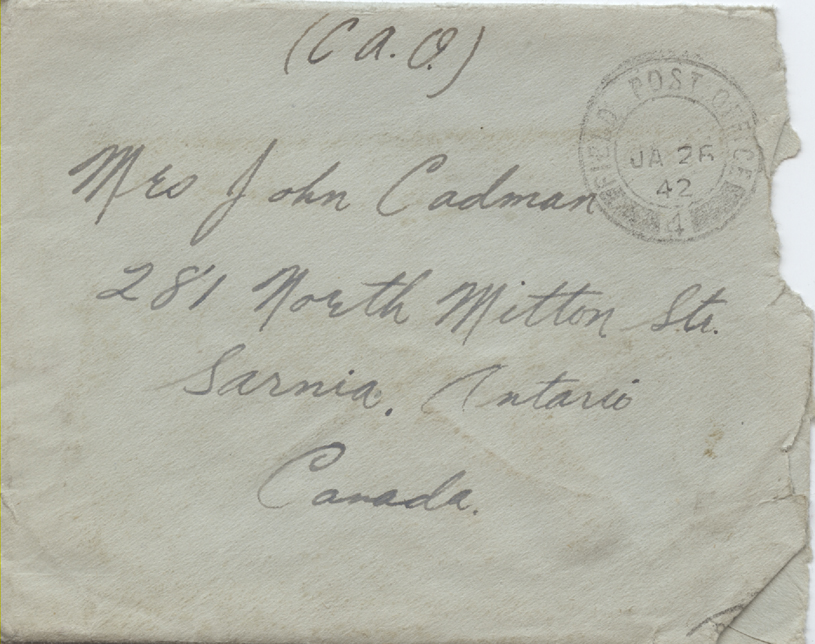 (C A. O.)
FIELD POST OFFICE
JA 26
42
4
Mrs John Cadman
281 North Mitton Str.
Sarnia. Ontario
Canada.